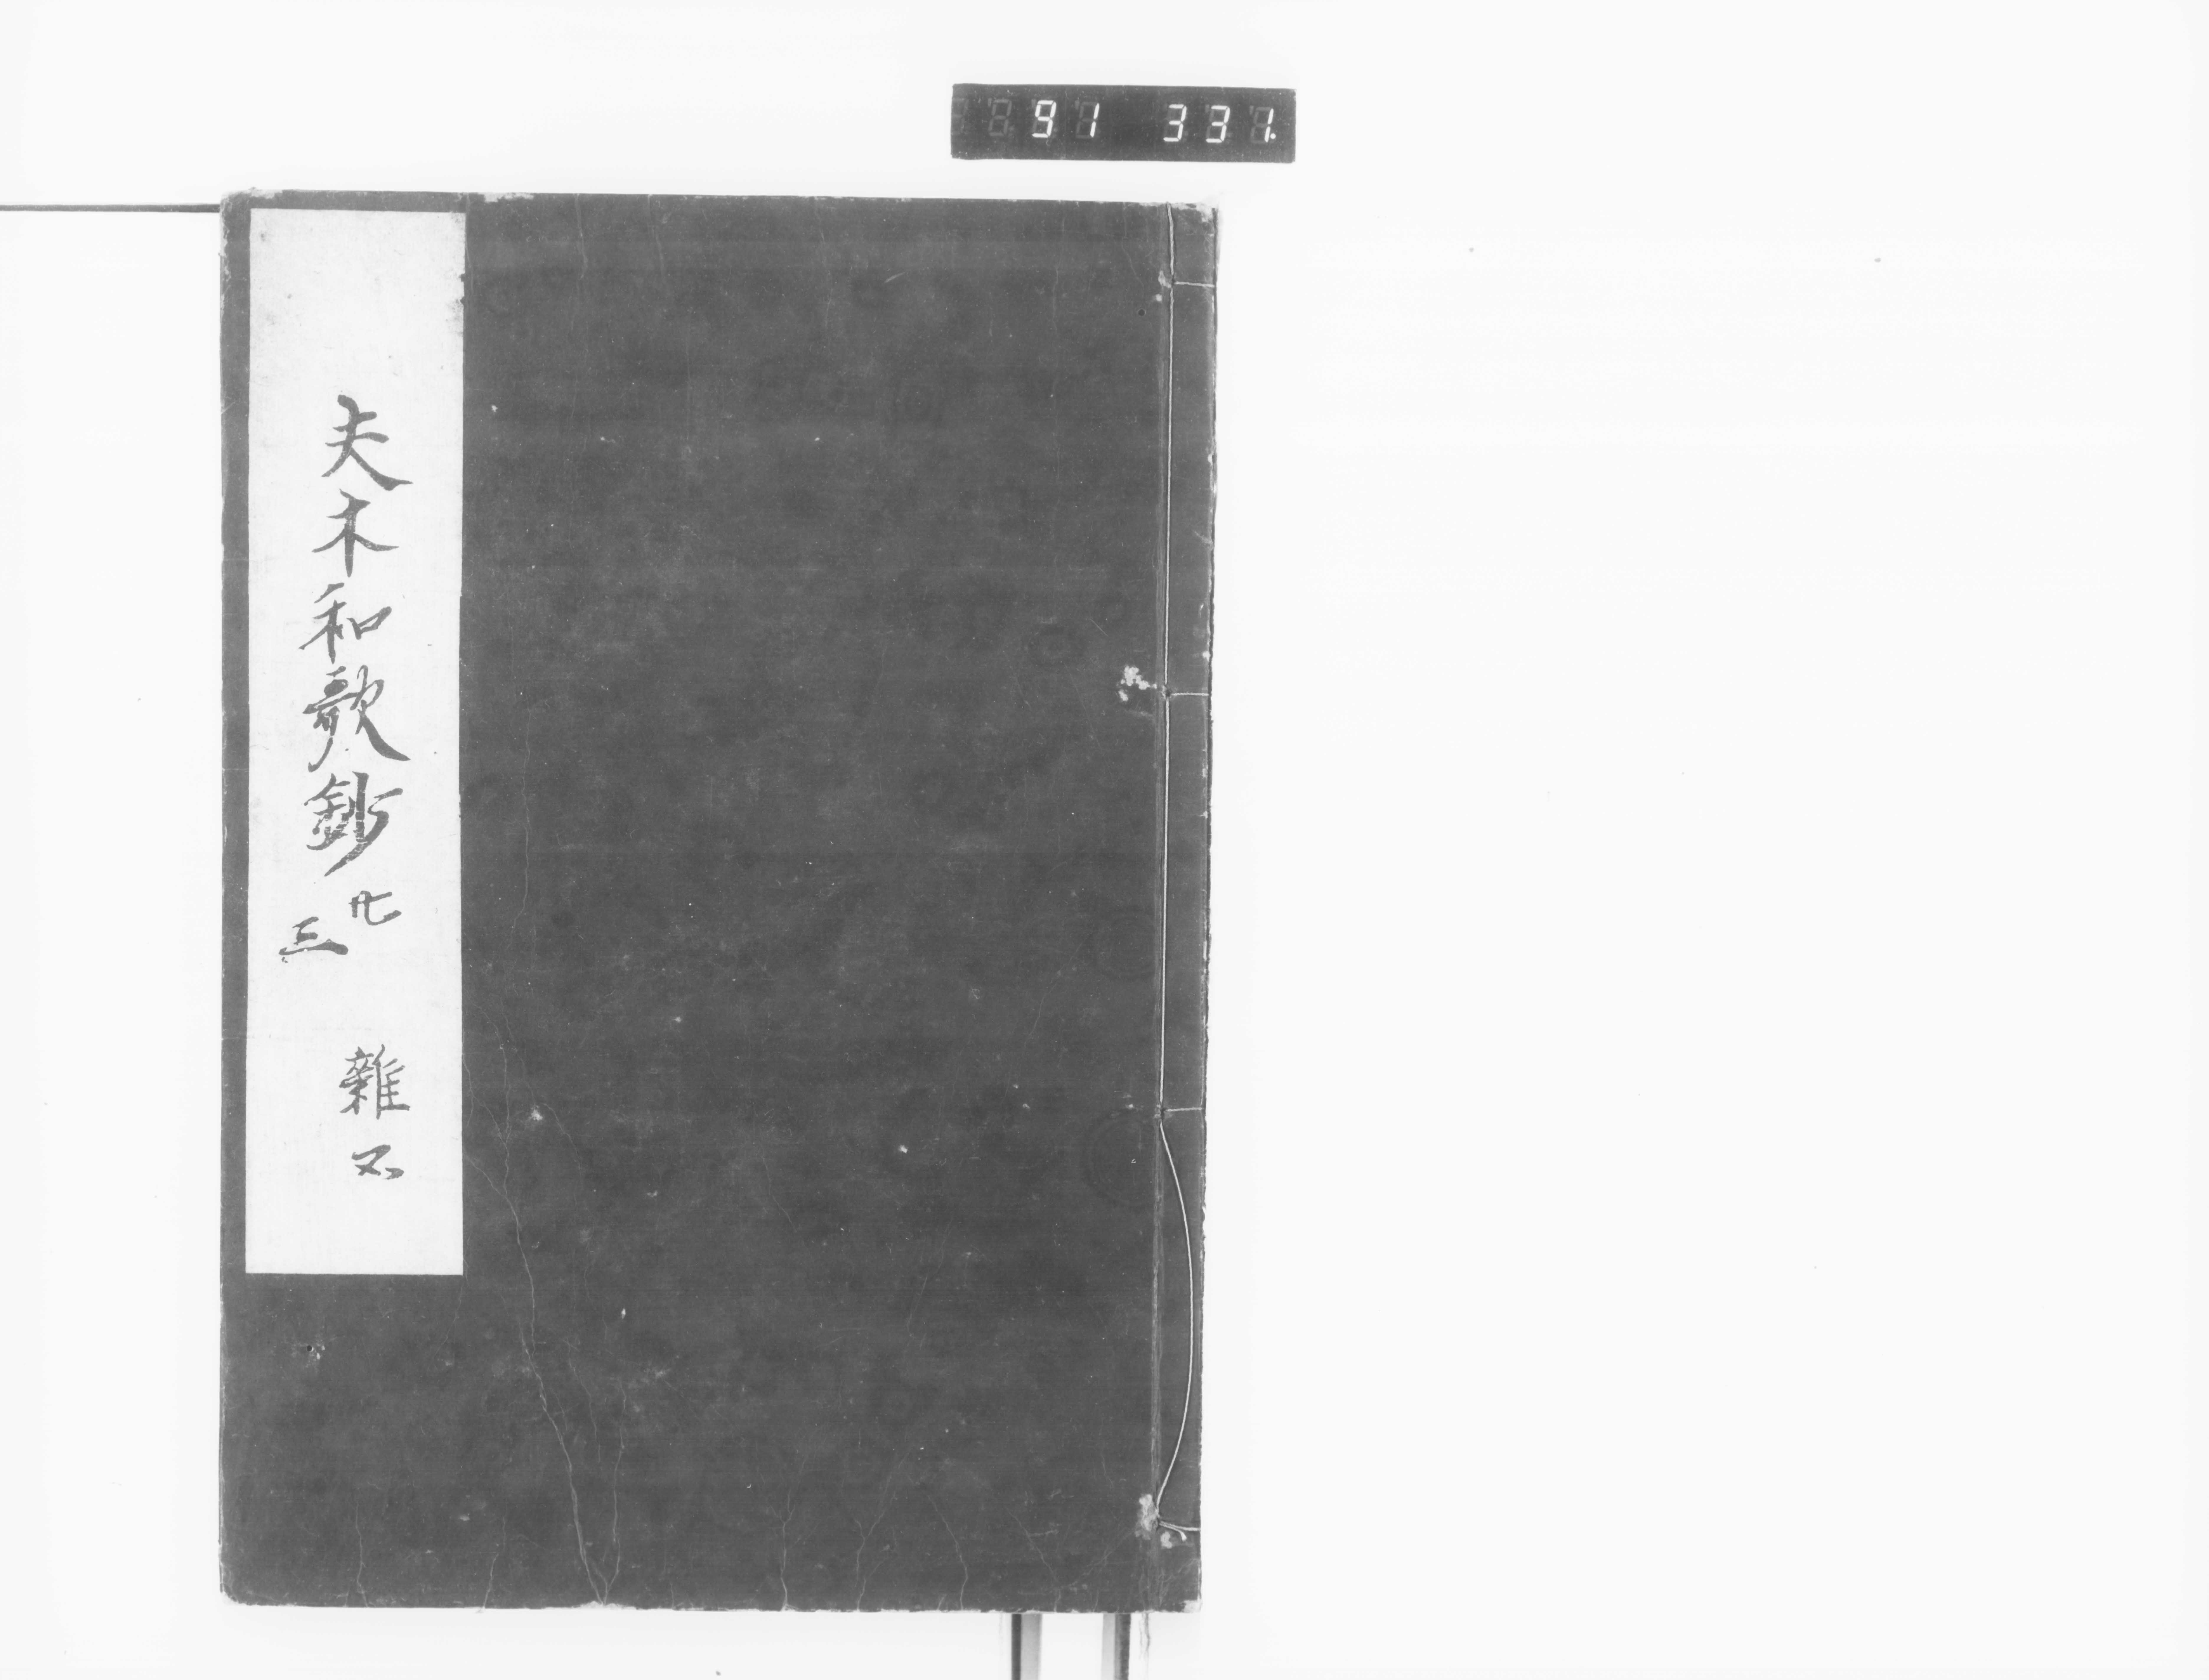 91 331.
夫木和歌鈔 廿三 雜五